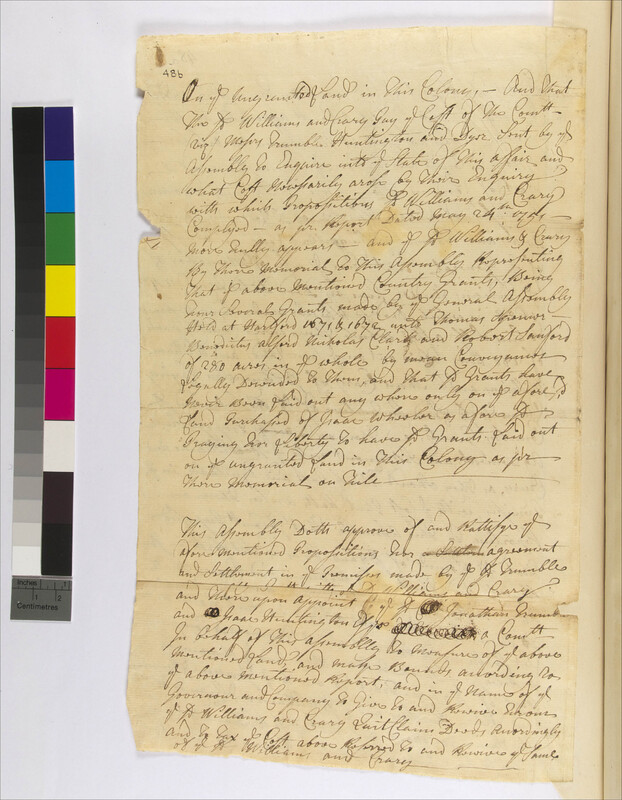 486
On ye Ungranted Land in This Colony, - And That
The sd Williams and Crary Pay ye Cost of The Comtt -
Messrs Trumble Huntington and Dyer Sent by ye
Assembly to Enquire into ye State of This affair and
what Cost Nessarily arose by Their Enquiry
with which Propositions sd Williams and Crary
Complyed - as pr. Report Dated May 24th
More Fully appears - and ye sd Williams & Crary
By There Memorial to This Assembly Representing
That ye above Mentioned Country Grants, Being
Four Several Grants made by ye General Assembly
Held at Hartford 1671 & 1672 unto Thomas Spencer -
Benedictus Alford Nicholas Clark and Robert Sanford
of 280 acres in ye whole by mean Conveyances
Legally Descended to Them, and That sd Grants have
Never Been Laid out any where only on ye afore sd
Land Purchased of Isaac Wheeler as afore sd
Praying For Liberty to have sd Grants Laid out
on ye ungranted Land in This Colony as per
There Memorial on File
This Assembly Doth approve of and Rattifye ye
afore Mentioned Propositions For agreement
and Settlement in ye Premises made by ye sd Trumble
and Williams and Crary
and There upon Appoint ye sd Jonathan Trumble
and Isaac Huntington Esqrs a Comtt
In behalf of This Assembly to Measure of ye above
Mentioned Land, and make Bounds according to
ye above Mentioned Report, and in ye Name of ye
Governour and Company to Give to and Receive From
ye sd Williams and Crary Quit Claim Deeds Accordingly
And to Tax ye Cost above Referred to and Receive ye Same
of ye sd Williams and Crary
Inches 1 2
Centimetres